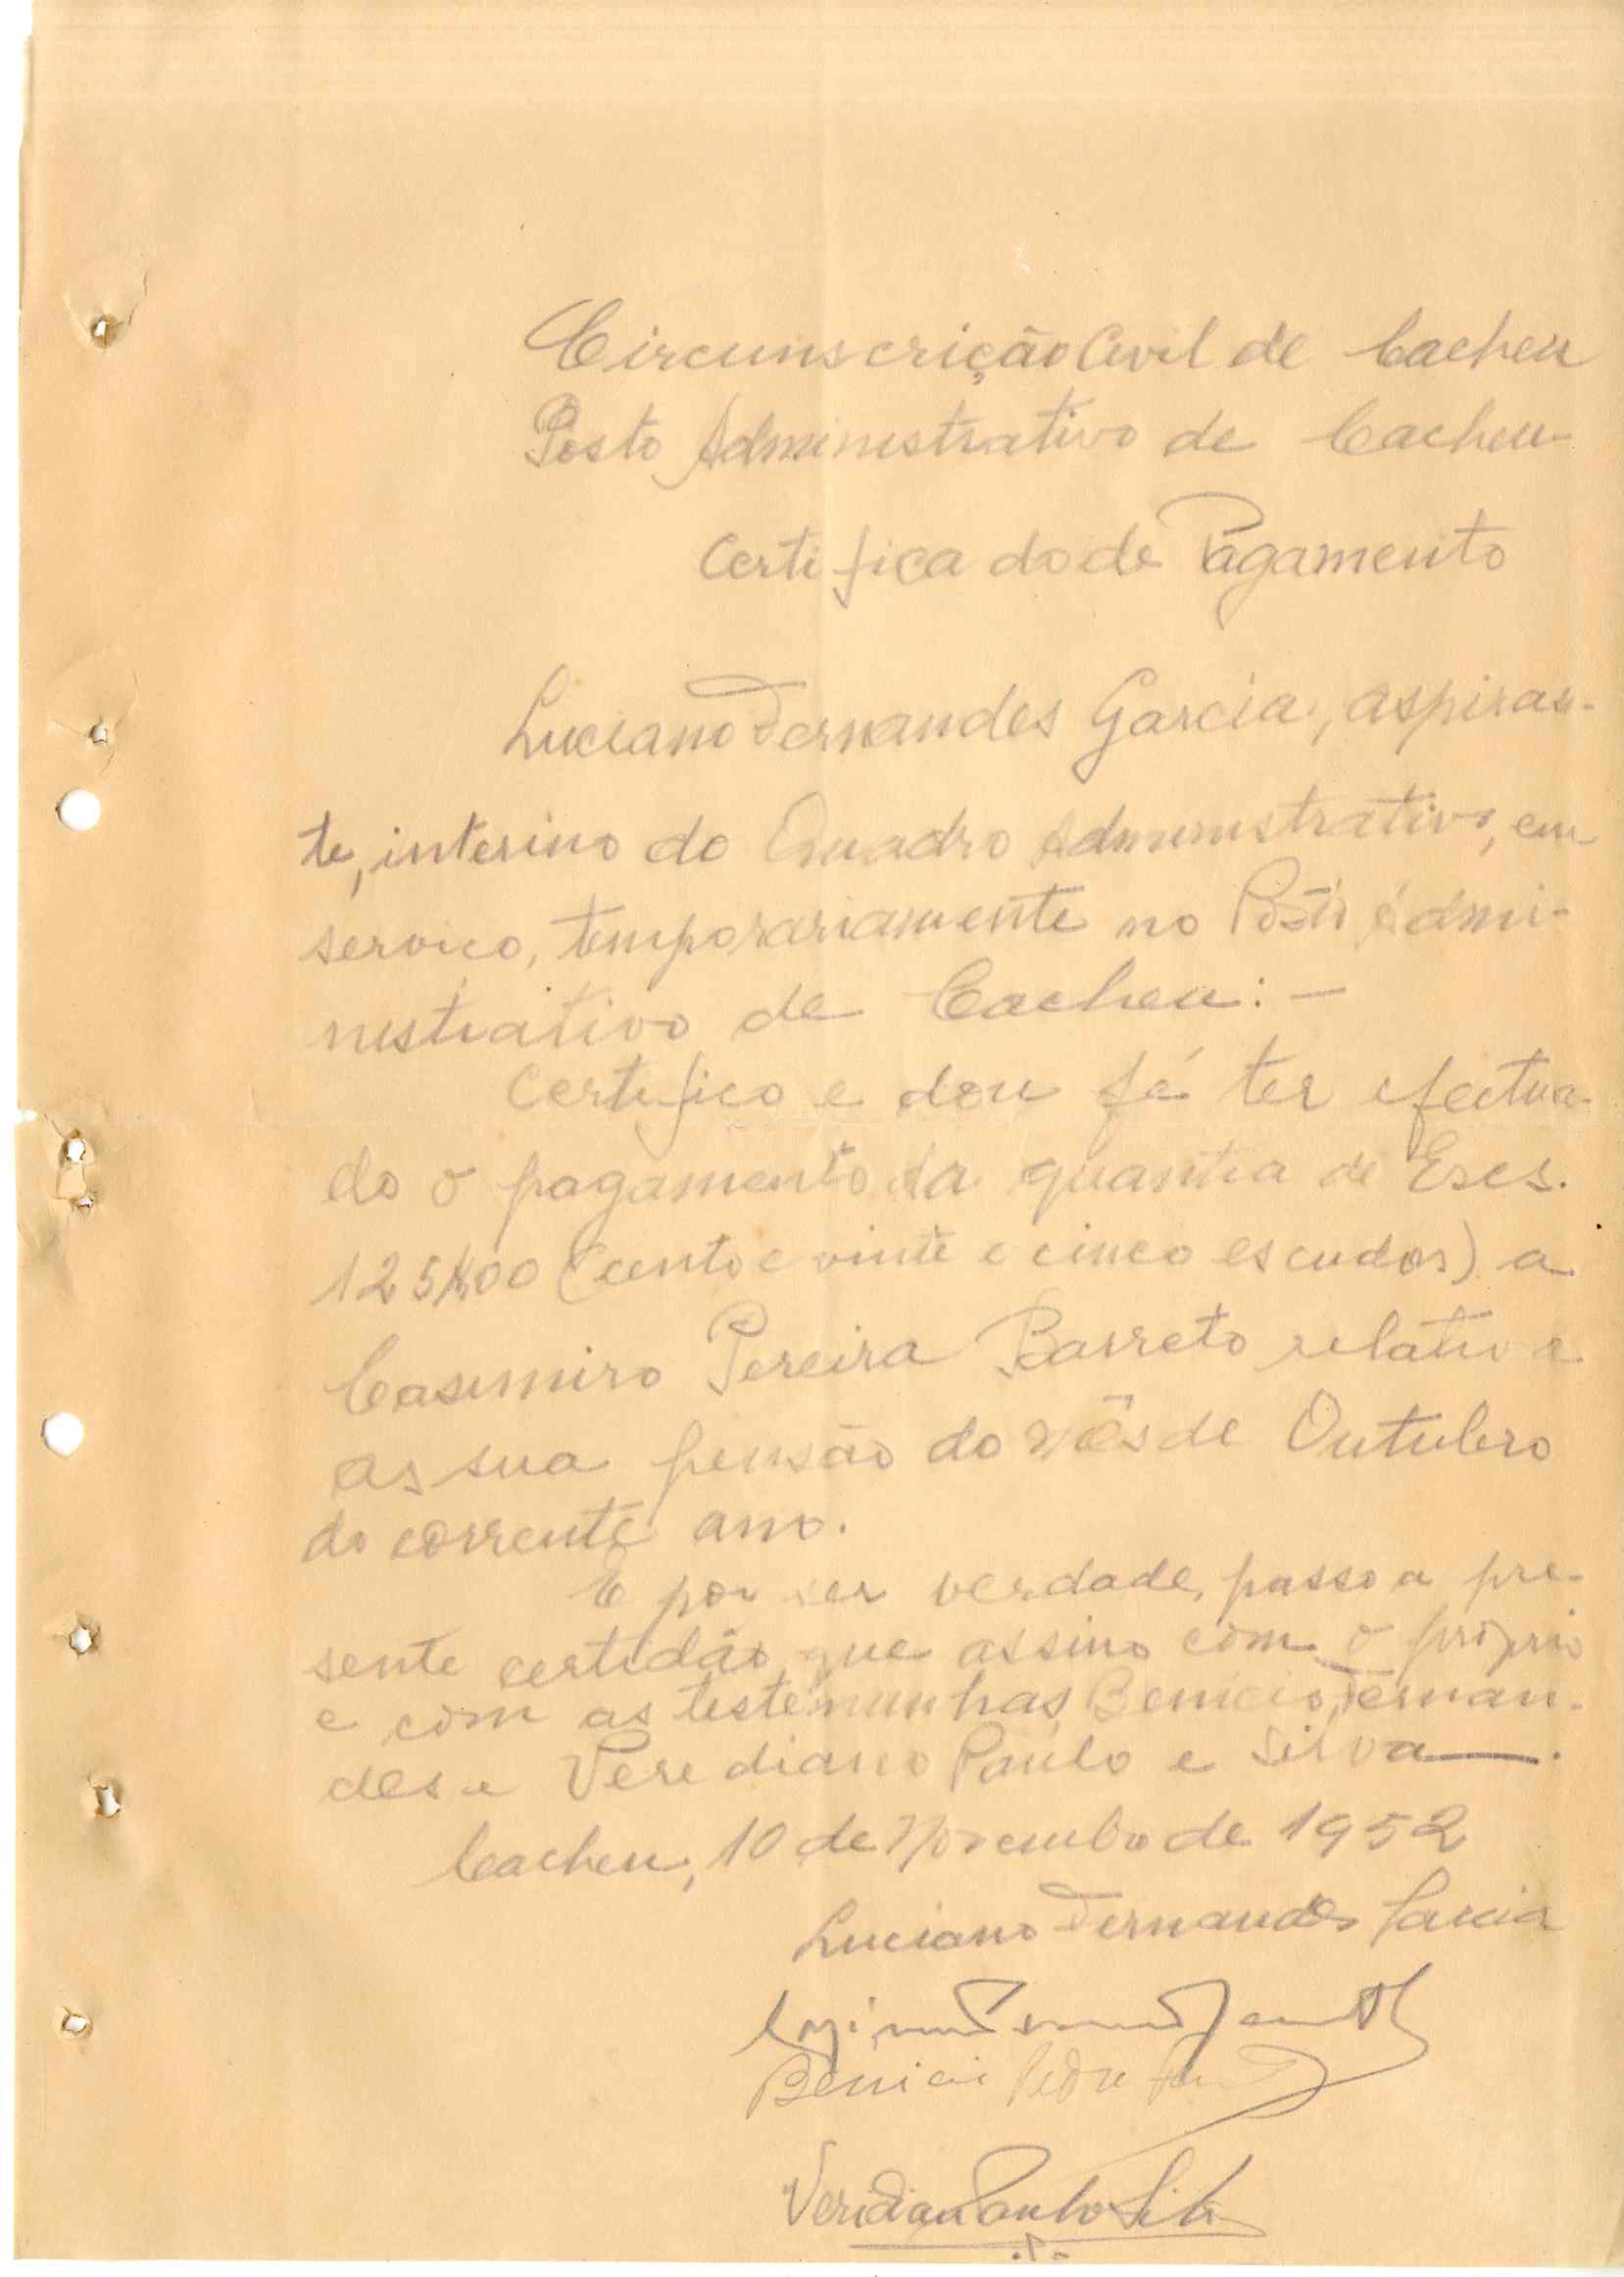 Circunscrição Civil de Cacheu
Posto Administrativo de Cacheu
Certificado de Pagamento
Luciano Fernandes Garcia, aspiran-
te, interino do Quadro Administrativo, em
serviço, temporariamente no Posto Admi-
nistrativo de Cacheu: —
Certifico e dou fé ter efectua-
do o pagamento da quantia de Escs.
125$00 (cento e vinte e cinco escudos) a
Casimiro Pereira Barreto relativa
as sua pensão do mês de Outubro
do corrente ano.
E por ser verdade, passo a pre-
sente certidão que assino com o próprio
e com as testemunhas Benicio Fernan-
des e Verediano Paulo e Silva —.
Cacheu, 10 de Novembro de 1952
Luciano Fernandes Garcia
Benicio Pedro
Veridiano Paulo Silva